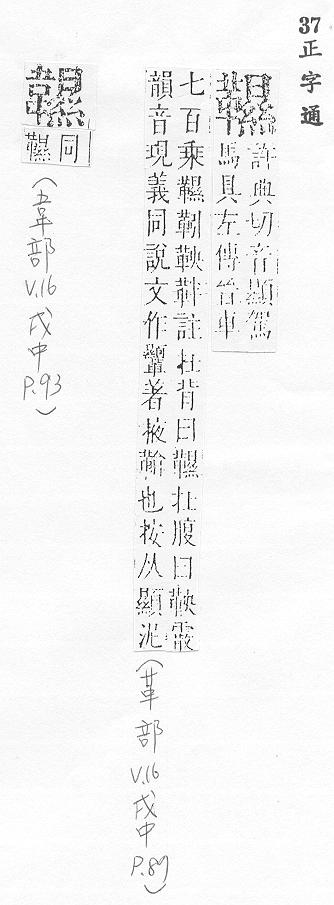 37正字通
許典切音顯駕
馬具左傳晉車
七百乘靷鞅靽註在背曰在腹曰鞅霰
韻音現義同說文作著掖鞥也按从顯泥
(廿革部 V.16 戌中 P.89)
同
(五韋部 V.16 戌中 P.93)